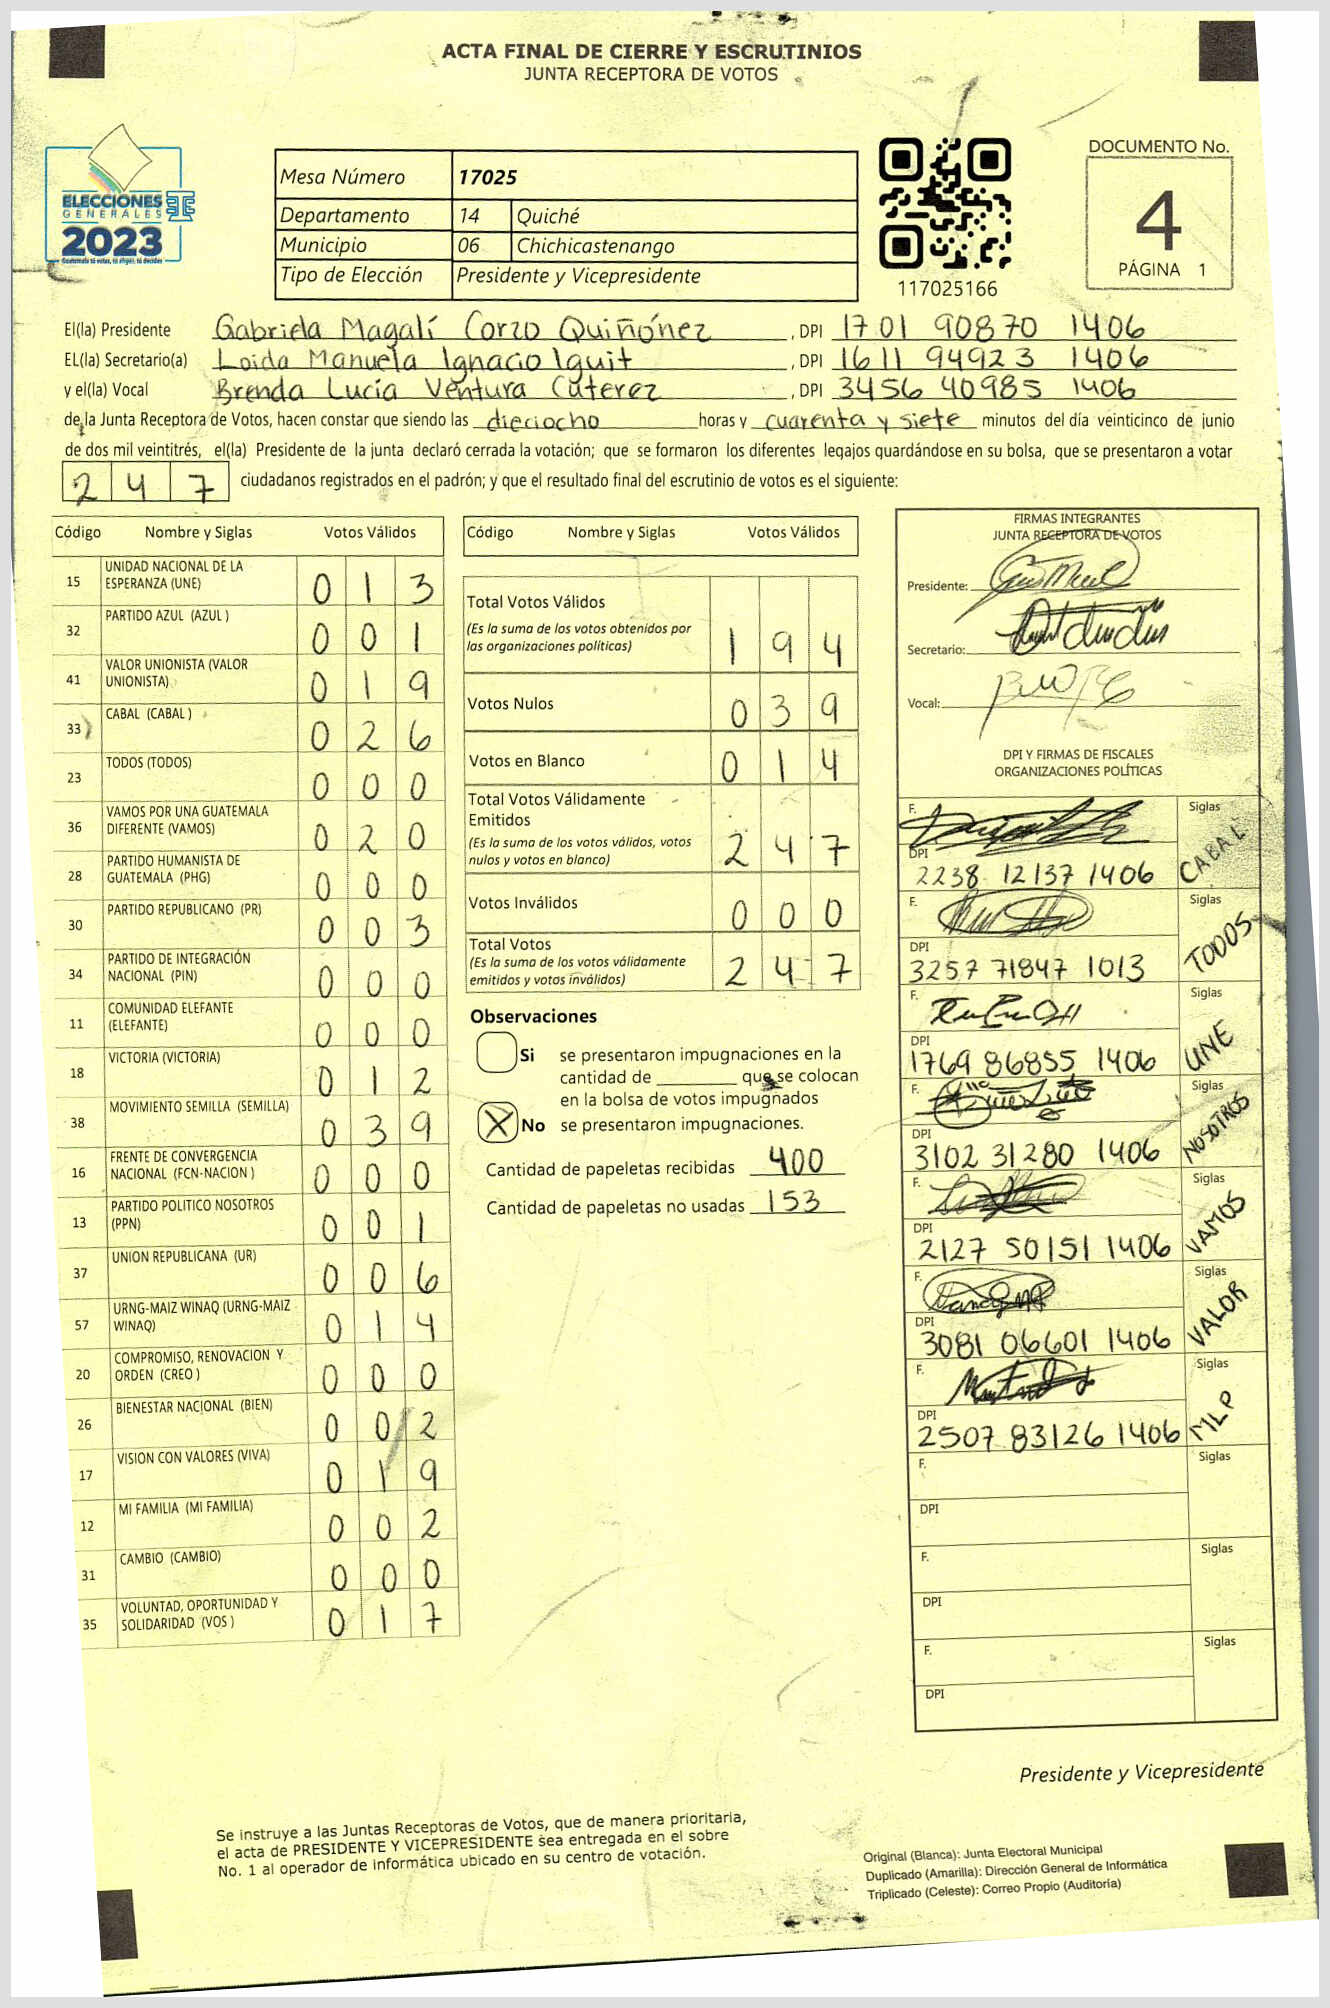 ACTA FINAL DE CIERRE Y ESCRUTINIOS
JUNTA RECEPTORA DE VOTOS
ELECCIONES
GENERALES
2023
Guatemala tú votas, tú eliges, tú decides
Mesa Número 17025
Departamento 14 Quiché
Municipio 06 Chichicastenango
Tipo de Elección Presidente y Vicepresidente
117025166
DOCUMENTO No.
4
PÁGINA 1
El(la) Presidente Gabriela Magalí Corzo Quiñónez, DPI 1701 90870 1406
EL(la) Secretario(a) Loida Manuela Ignacio Iguit, DPI 1611 94923 1406
y el(la) Vocal Brenda Lucía Ventura Cuterez, DPI 3456 40985 1406
de la Junta Receptora de Votos, hacen constar que siendo las dieciocho horas y cuarenta y siete minutos del día veinticinco de junio
de dos mil veintitrés, el(la) Presidente de la junta declaró cerrada la votación; que se formaron los diferentes legajos guardándose en su bolsa, que se presentaron a votar
247 ciudadanos registrados en el padrón; y que el resultado final del escrutinio de votos es el siguiente:
Código Nombre y Siglas Votos Válidos
15 UNIDAD NACIONAL DE LA ESPERANZA (UNE) 0 1 3
32 PARTIDO AZUL (AZUL ) 0 0 1
41 VALOR UNIONISTA (VALOR UNIONISTA) 0 1 9
33 CABAL (CABAL ) 0 2 6
23 TODOS (TODOS) 0 0 0
36 VAMOS POR UNA GUATEMALA DIFERENTE (VAMOS) 0 2 0
28 PARTIDO HUMANISTA DE GUATEMALA (PHG) 0 0 0
30 PARTIDO REPUBLICANO (PR) 0 0 3
34 PARTIDO DE INTEGRACIÓN NACIONAL (PIN) 0 0 0
11 COMUNIDAD ELEFANTE (ELEFANTE) 0 0 0
18 VICTORIA (VICTORIA) 0 1 2
38 MOVIMIENTO SEMILLA (SEMILLA) 0 3 9
16 FRENTE DE CONVERGENCIA NACIONAL (FCN-NACION ) 0 0 0
13 PARTIDO POLITICO NOSOTROS (PPN) 0 0 1
37 UNION REPUBLICANA (UR) 0 0 6
57 URNG-MAIZ WINAQ (URNG-MAIZ WINAQ) 0 1 4
20 COMPROMISO, RENOVACION Y ORDEN (CREO ) 0 0 0
26 BIENESTAR NACIONAL (BIEN) 0 0 2
17 VISION CON VALORES (VIVA) 0 1 9
12 MI FAMILIA (MI FAMILIA) 0 0 2
31 CAMBIO (CAMBIO) 0 0 0
35 VOLUNTAD, OPORTUNIDAD Y SOLIDARIDAD (VOS ) 0 1 7
Código Nombre y Siglas Votos Válidos
Total Votos Válidos
(Es la suma de los votos obtenidos por
las organizaciones políticas) 1 9 4
Votos Nulos 0 3 9
Votos en Blanco 0 1 4
Total Votos Válidamente
Emitidos
(Es la suma de los votos válidos, votos
nulos y votos en blanco) 2 4 7
Votos Inválidos 0 0 0
Total Votos
(Es la suma de los votos válidamente
emitidos y votos inválidos) 2 4 7
Observaciones
Si se presentaron impugnaciones en la
cantidad de ________ que se colocan
en la bolsa de votos impugnados
X No se presentaron impugnaciones.
Cantidad de papeletas recibidas 400
Cantidad de papeletas no usadas 153
FIRMAS INTEGRANTES
JUNTA RECEPTORA DE VOTOS
Presidente:
Secretario:
Vocal:
DPI Y FIRMAS DE FISCALES
ORGANIZACIONES POLÍTICAS
F. Siglas
DPI 2238 12137 1406 CABAL
F. Siglas
DPI 3257 71847 1013 TODOS
F. Siglas
DPI 1769 86855 1406 UNE
F. Siglas
DPI 3102 31280 1406 NOSOTROS
F. Siglas
DPI 2127 50151 1406 VAMOS
F. Siglas
DPI 3081 06601 1406 VALOR
F. Siglas
DPI 2507 83126 1406 MLP
F. Siglas
DPI
F. Siglas
DPI
F. Siglas
DPI
Presidente y Vicepresidente
Se instruye a las Juntas Receptoras de Votos, que de manera prioritaria,
el acta de PRESIDENTE Y VICEPRESIDENTE sea entregada en el sobre
No. 1 al operador de informática ubicado en su centro de votación.
Original (Blanca): Junta Electoral Municipal
Duplicado (Amarilla): Dirección General de Informática
Triplicado (Celeste): Correo Propio (Auditoría)